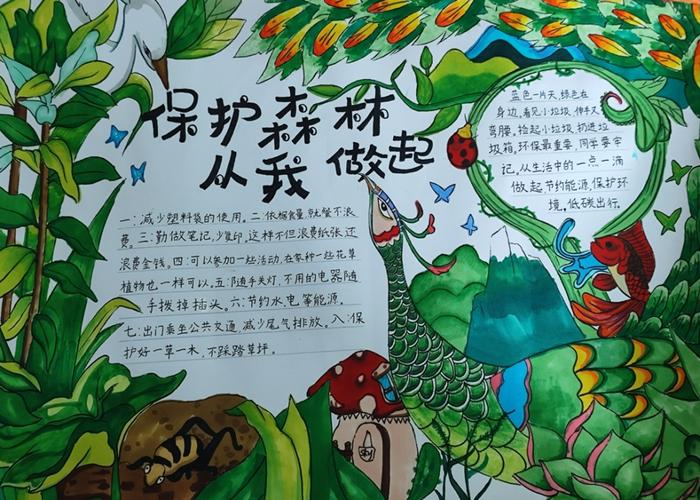 保护森林
从我做起
一：减少塑料袋的使用。二：依据食量，就餐不浪
费。三：勤做笔记，少复印，这样不但浪费纸张还
浪费金钱。四：可以参加一些活动，在家种一些花草
植物也一样可以。五：随手关灯，不用的电器随
手拨掉插头。六：节约水电等能源。
七：出门乘坐公共交通，减少尾气排放。入：保
护好一草一木，不踩踏草坪。
蓝色一片天，绿色在
身边，看见小垃圾，伸手又
弯腰。捡起小垃圾，扔进垃
圾箱。环保最重要，同学要牢
记。从生活中的一点一滴
做起节约能源，保护环
境，低碳出行。